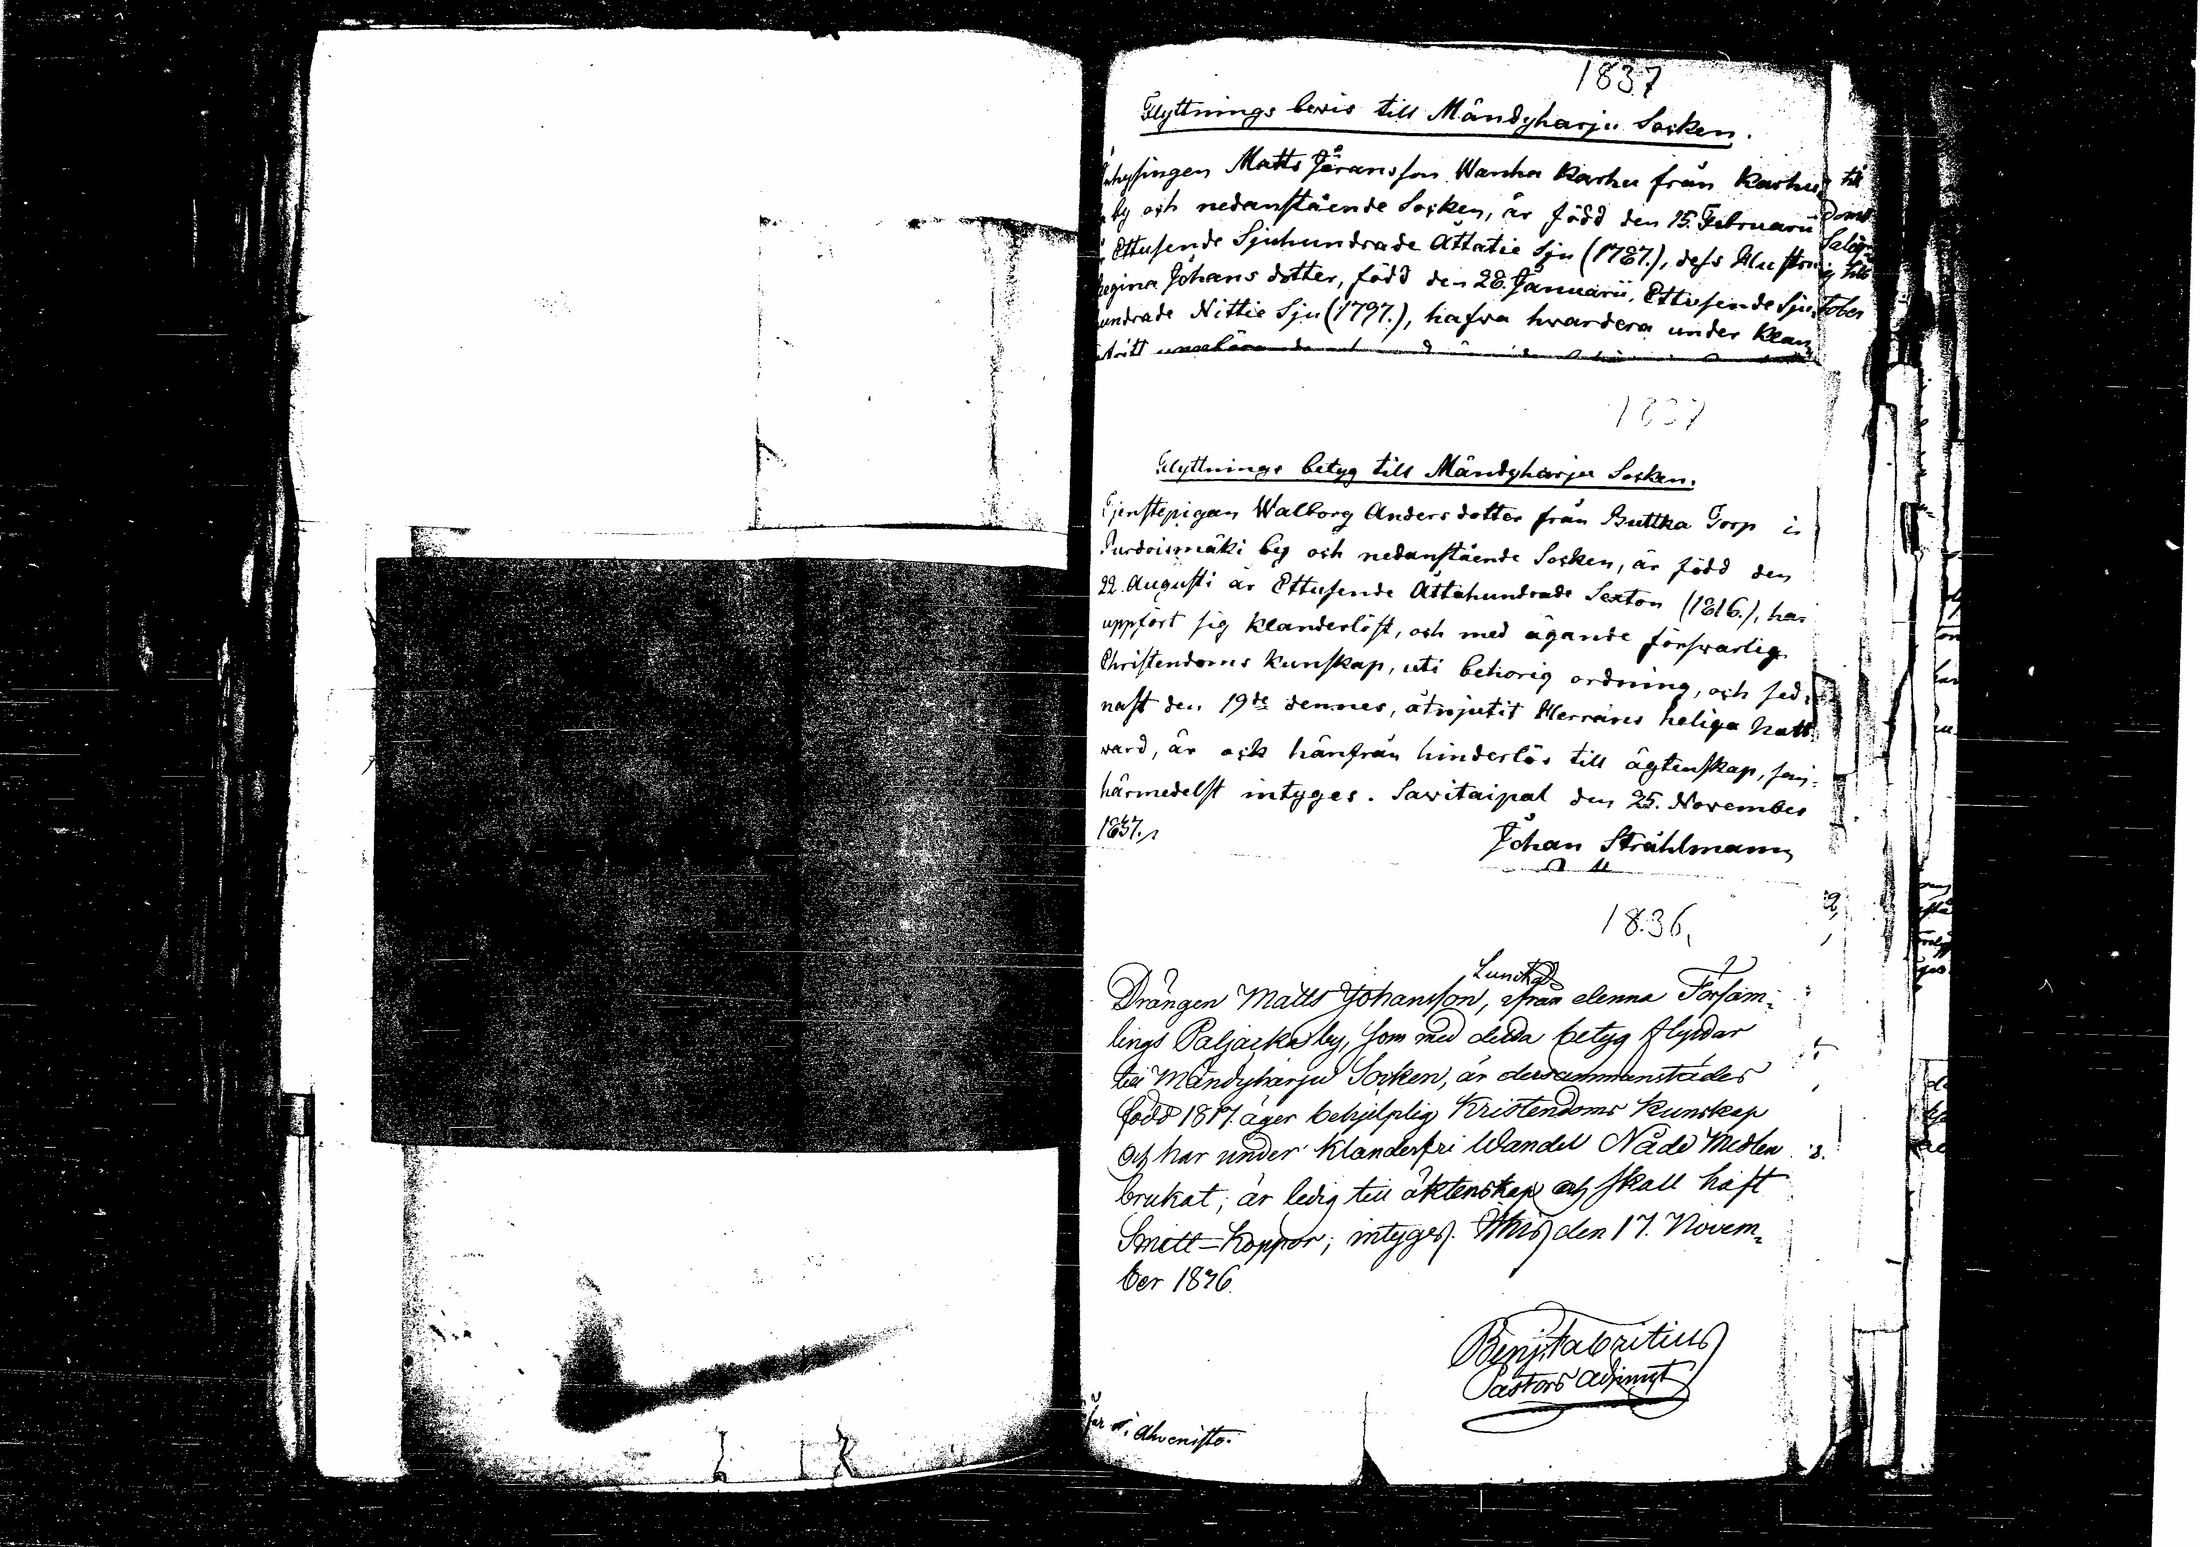 1837
Flyttnings bevis till Mändyharju Socken.
Inhysingen Matts Jöransson Wanha Karhu från Karhu
by och nedanstående Socken, är född den 15. Februarii
Ettusende Sjuhundrade Åttatie Sju (1787.), dess Hustru
Regina Johans dotter, född den 28. Januarii, Ettusende Sju
hundrade Nittie Sju (1797.), hafva hvardera under Klan
1837
Flyttnings betyg till Mändyharju Socken.
Tjenstepigan Walborg Anders dotter från Buttka Torp i
Purdoismäki by och nedanstående Socken, är född den
22. Augusti år Ettusende Åttahundrade Sexton (1816.), har
uppfört sig klanderlöst, och med ägande försvarlig
Christendoms kunskap, uti behörig ordning, och sed-
nast den 19de dennes, åtnjutit Herrans heliga Natt-
vard, är ock härifrån hinderlös till ägtenskap, som
härmedelst intyges. Savitaipal den 25. November
1837.
Johan Stråhlman
1836.
Drängen Matts Johansson, från denna Försam-
lings Paljacka by, som med detta betyg flyttar
till Mändyharju Socken, är dersammanstädes
född 1817. äger behjelplig Kristendoms Kunskap
och har under klanderfri Wandel Nåde Medlen
brukat; är ledig till äktenskap och skall haft
Smitt-Koppor; intygas. den 17. Novem-
ber 1836.
Benj. Fabritius
Pastors Adjunct
Ahvenisto.